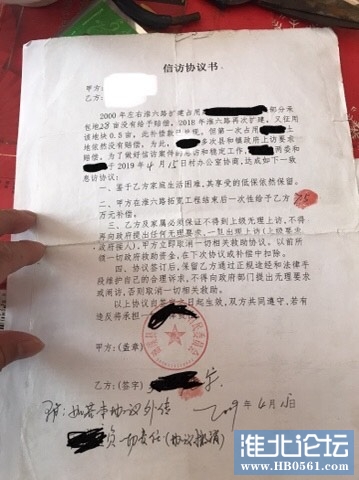 信访协议书
甲方：
乙方：
2000年左右淮六路扩建占用 部分承
包地28亩没有给予赔偿。2018年淮六路再次扩建，又征用
该地块0.5亩，此补偿款已兑现。但第一次占用 土
地依然没有赔偿。为此， 多次县和镇政府上访要求
赔偿。为了做好信访案件的息访和稳定工作， 两委和
于2019年4月15日村办公室协商，达成如下一致
息访协议：
一、鉴于乙方家庭生活困难，其享受的低保依然保留。
二、甲方在淮六路拓宽工程结束后一次性给予乙方
万元补偿。
三、乙方及家属必须保证不得到上级无理上访，不得
再向政府提出任何无理要求，一旦出现上访（上级要求
政府接人），甲方立即取消一切相关救助协议，以前所
领一切政府救助资金，在下次协议或补偿中扣除。
四、协议签订后，保留乙方通过正规途经和法律手
段维护自己的合理诉求，不得向政府部门提出无理要求
或闹访，否则取消一切相关救助。
以上协议自签字之日起生效，双方共同遵守，若有
违反将承担一
甲方：（盖章）
乙方：（签字）
2019年4月15日
注：如若本协议外传
负一切责任（协议撤销）
淮北论坛
www.HB0561.com